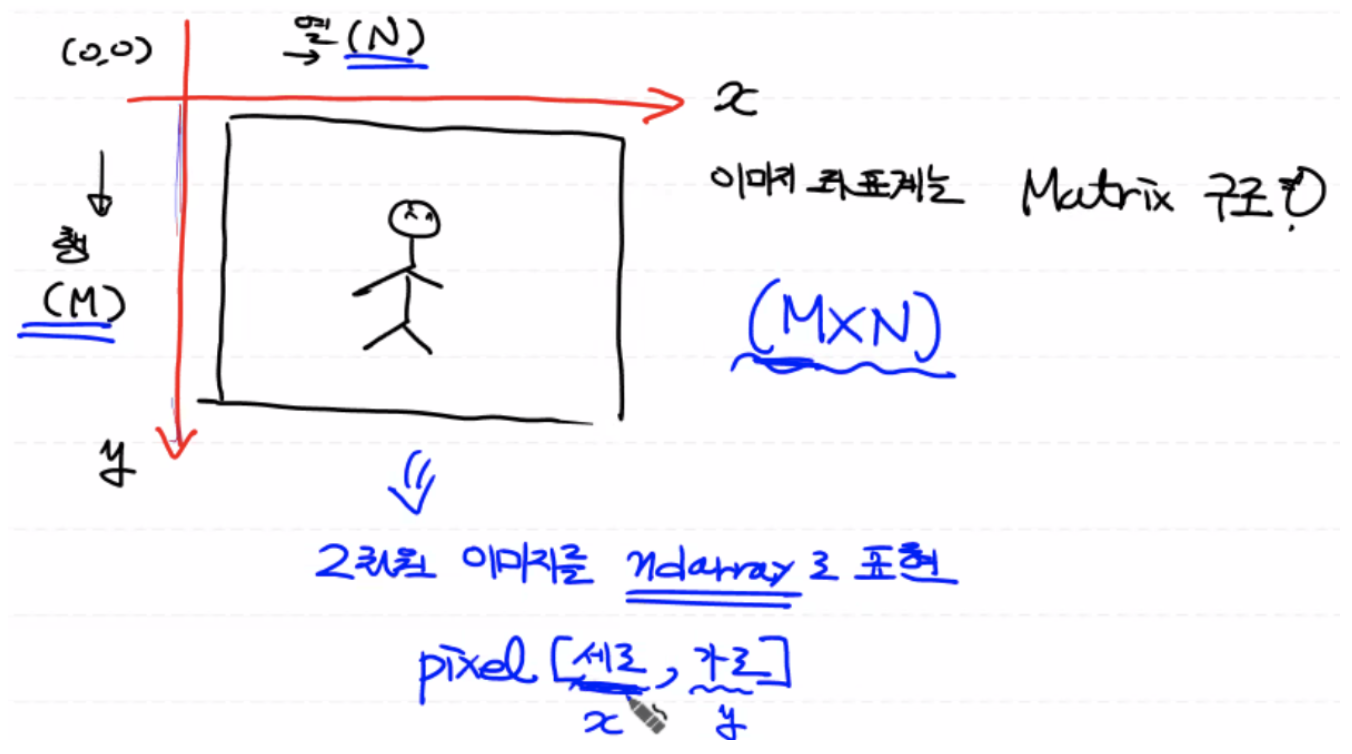 (0,0)
열 (N)
x
이미지 좌표계는 Matrix 구조!
행
(M)
(M×N)
y
2차원 이미지를 ndarray로 표현
pixel [세로, 가로]
x y